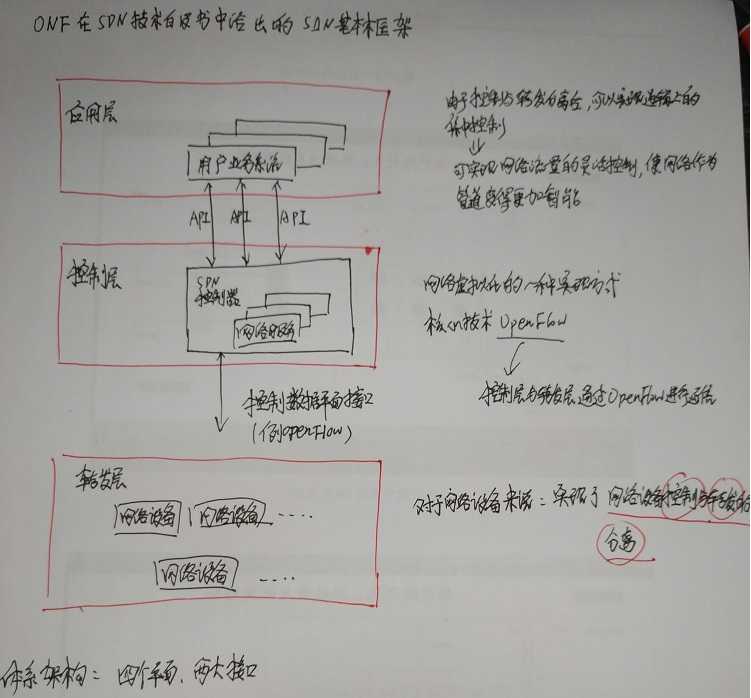 ONF在SDN技术白皮书中给出的SDN基本框架
应用层
用户业务系统
API API API
控制层
SDN
控制器
网络服务
控制数据平面接口
(例OpenFlow)
转发层
网络设备 网络设备 ....
网络设备 ....
由于控制与转发的离合,可以实现逻辑上的
集中控制
可实现网络流量的灵活控制,使网络作为
管道变得更加智能
网络虚拟化的一种实现方式
核心技术 OpenFlow
控制层与转发层通过OpenFlow进行通信
对于网络设备来说:实现了网络设备控制与转发的
分离
体系架构:四个平面、两大接口